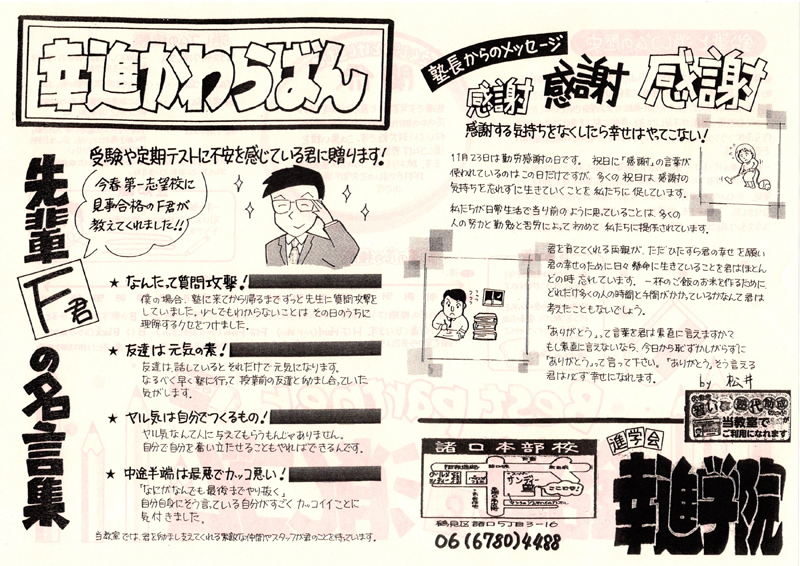 幸進かわらばん
受験や定期テストに不安を感じている君に贈ります!
今春 第一志望校に
見事合格のF君が
教えてくれました!!
先輩
F君
の名言集
★ なんたって質問攻撃!
僕の場合、塾に来てから帰るまでずっと先生に質問攻撃を
していました。少しでもわからないことは その日のうちに
理解するクセをつけました。
★ 友達は元気の素!
友達は、話しているとそれだけで元気になります。
なるべく早く塾に行って 授業前の友達と励まし合っていた
気がします。
★ ヤル気は自分でつくるもの!
ヤル気なんて人に与えてもらうもんじゃありません。
自分で自分を奮い立たせることもやればできるんです。
★ 中途半端は最悪でカッコ悪い!
「なにがなんでも最後までやり抜く」
自分自身にそう言っている自分がすごくカッコイイことに
気付きました。
当教室では、君を励まし支えてくれる素敵な仲間やスタッフが君のことを待っています。
塾長からのメッセージ
感謝 感謝 感謝
感謝する気持ちをなくしたら幸せはやってこない!
11月23日は勤労感謝の日です。 祝日に「感謝」の言葉が
使われているのはこの日だけですが、多くの祝日は、感謝の
気持ちを忘れずに生きていくことを私たちに促しています。
私たちが日常生活で当り前のように思っていることは、多くの
人の努力と勤勉と苦労によって初めて 私たちに提供されています。
君を育ててくれる両親が、ただひたすら君の幸せを願い
君の幸せのために日々懸命に生きていることを君はほとん
どの時 忘れています。一杯のご飯のお米を作るために、
どれだけ多くの人の時間と手間がかかっているかなんて君は
考えたこともないでしょう。
「ありがとう」って言葉を君は素直に言えますか?
もし素直に言えないなら、今日から恥ずかしがらずに
「ありがとう」って言って下さい。「ありがとう」そう言える
君は必ず幸せになれます。
by 松井
当教室で
ご利用になれます
諸口本部校
サンディ
ここじゃ!
鶴見区諸口5丁目3-16
06(6780)4488
進学会
幸進学院